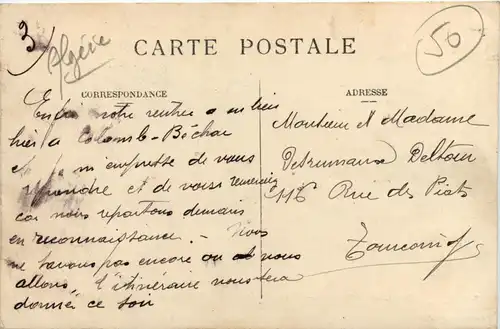 3
Algérie
50
CARTE POSTALE
CORRESPONDANCE
Enfin notre rentrée a eu lieu
hier à Colomb-Béchar
et je m'empresse de vous
répondre et de vous remercier
car nous repartons demain
en reconnaissance. - Nous
ne savons pas encore où nous
allons, l'itinéraire nous sera
donné ce soir
ADRESSE
Monsieur et Madame
Desrumaux Deltour
116 Rue des Piats
Tourcoing